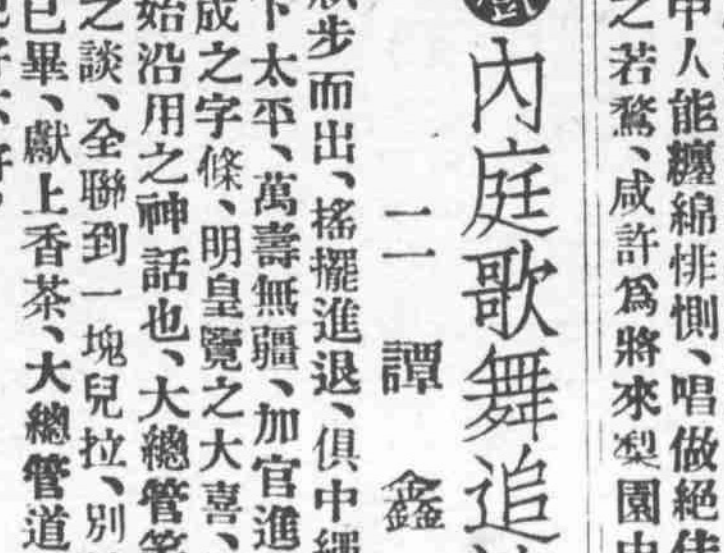 中人能纏綿悱惻、唱做絕佳
之若鶩、咸許爲將來梨園中
內庭歌舞追
二 譚鑫
步而出、搖擺進退、俱中繩
下太平、萬壽無疆、加官進
成之字條、明皇覽之大喜、
始沿用之神話也、大總管笑
之談、全聯到一塊兒拉、別
已畢、獻上香茶、大總管道